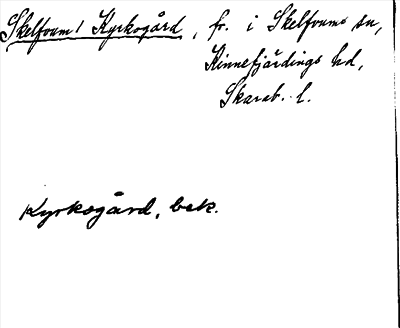 Skelfvum / Kyrkogård, fr. i Skelfvums sn,
Kinnefjärdings hd,
Skarab. l.
Kyrkogård, bek.